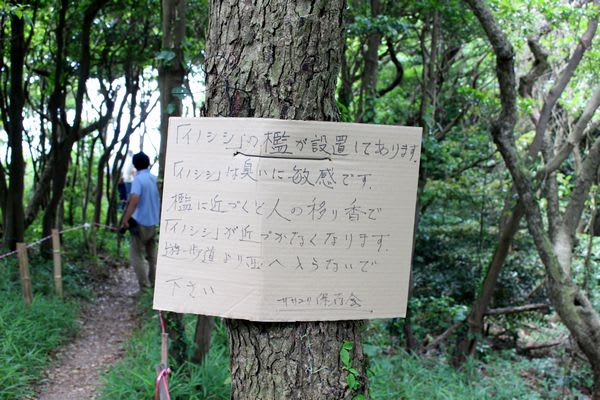 「イノシシ」の檻が設置してあります.
「イノシシ」は臭いに敏感です.
檻に近づくと人の移り香で
「イノシシ」が近づかなくなります.
遊歩道より へ入らないで
下さい
ササユリ保存会